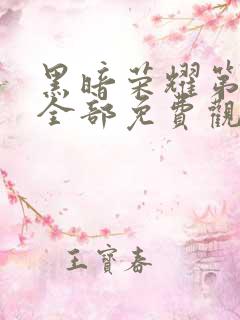 黑暗荣耀第
全部免費觀
王寶春